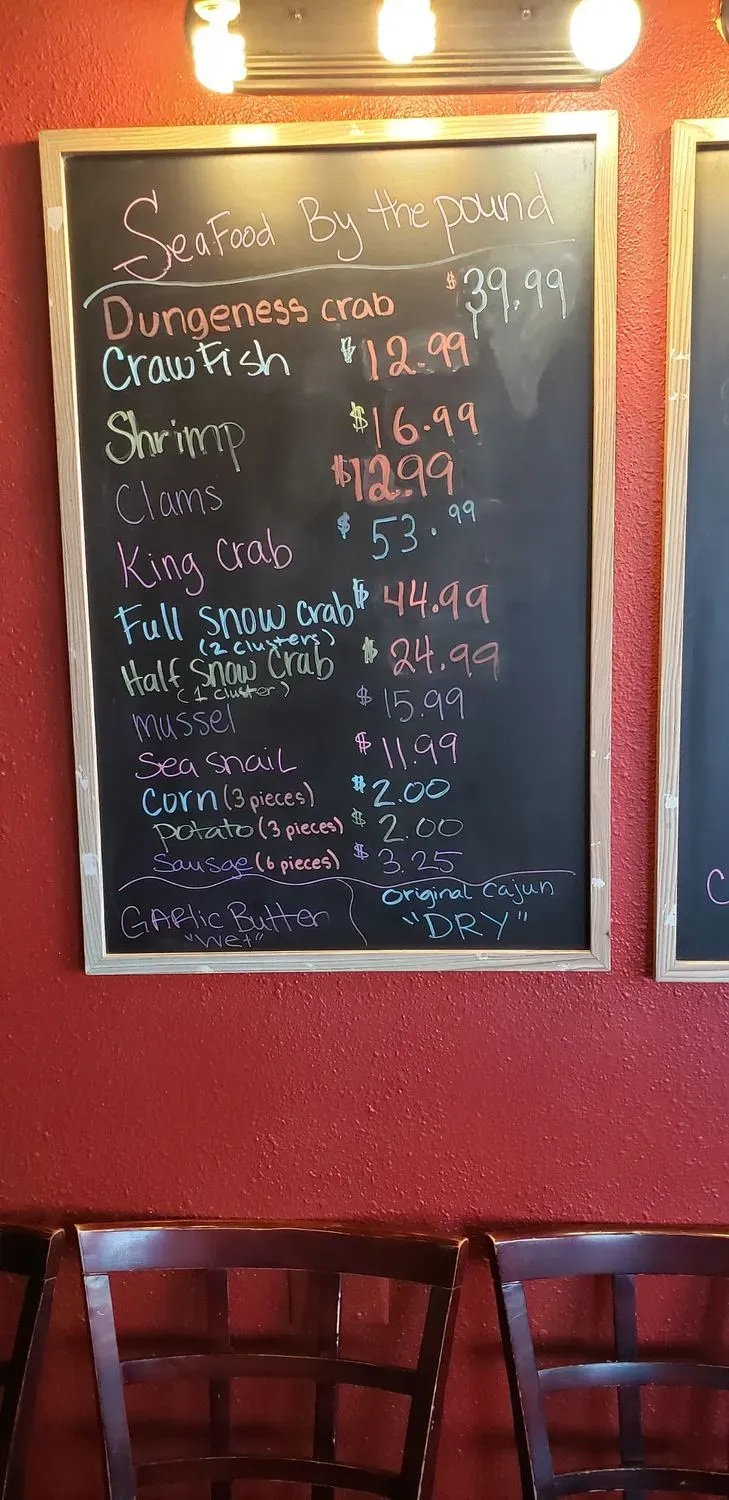 SeaFood By the pound
Dungeness crab $39.99
CrawFish $12.99
Shrimp $16.99
Clams $12.99
King Crab $53.99
Full Snow Crab $44.99
(2 clusters)
Half Snow Crab $24.99
(1 cluster)
mussel $15.99
Sea Snail $11.99
Corn (3 pieces) $2.00
potato (3 pieces) $2.00
Sausge (6 pieces) $3.25
GARlic Butter
"Wet"
Original Cajun
"DRY"
C